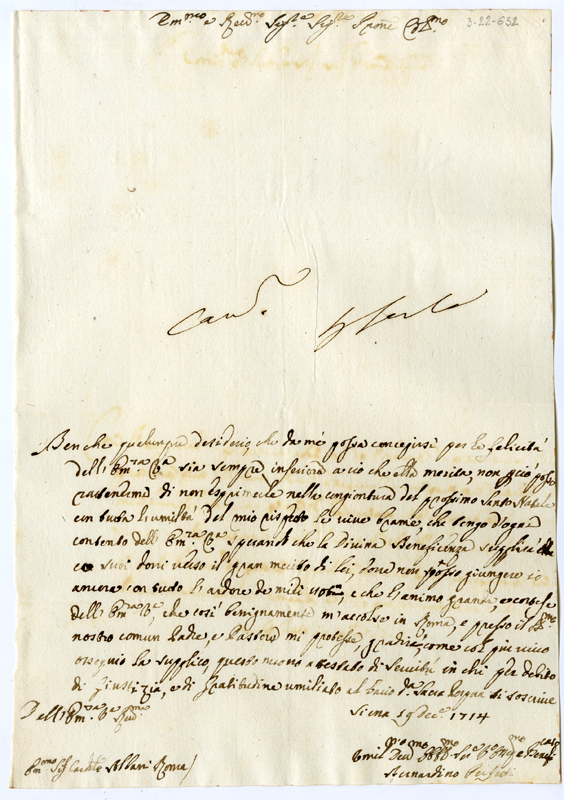 Em.mo e Rev.mo Sig.re Sig.re Pron.e Col.mo
3-22-632
Benche qualunque desiderio, che da me possa concepirsi per la felicità
dell'Em.za V.ra sia sempre inferiore a ciò che ella merita, non però posso
trattenermi di non esprimerle nella congiontura del prossimo Santo Natale
con tutta l'umiltà del mio rispetto le vive brame, che tengo d'ogni
contento dell'Em.za V.ra sperando che la Divina Beneficenza supplirà
co suoi doni verso il gran merito di lei, dove non posso giungere io
ancora con tutto l'ardore de miei voti, e che l'animo grande, e cortese
dell'Em.za V.ra, che così benignamente m'accolse in Roma, e presso il
nostro comun Padre, e Pastore mi protesse, gradirà come col più vivo
ossequio la supplico, questo nuovo attestato di Servitù in chi per debito
di Giustizia, e di Gratitudine umiliato al bacio d.a Sacra Porpora si soscrive
Dell'Em.za V.ra Rev.ma
Siena 19 Dec.e 1714
Em.mo Sig. Card.le Albani Roma
Bernardino Perfetti